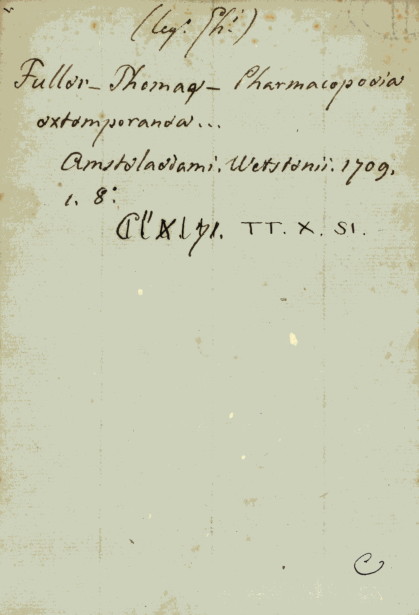 (leg: Ph:)
Fuller - Thomae - Pharmacopoeia
extemporanea...
Amstelaedami. Wetstenii. 1709.
1. 8:
TT. X. SI.
C